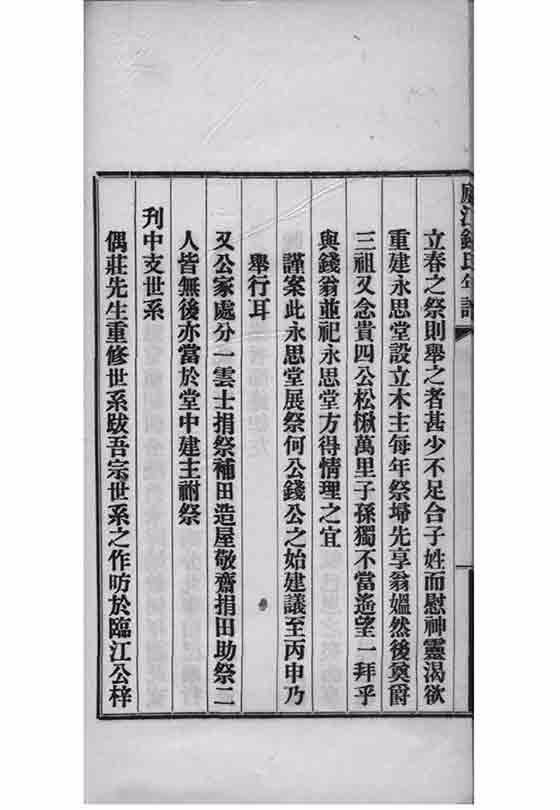 廬江錢氏年譜
立春之祭則舉之者甚少不足合子姓而慰神靈渴欲
重建永思堂設立木主每年祭埽先享翁媼然後奠爵
三祖又念貴四公松楸萬里子孫獨不當遙望一拜乎
與錢翁並祀永思堂方得情理之宜
謹案此永思堂展祭何公錢公之始建議至丙申乃
舉行耳
又公家處分一雲士捐祭補田造屋敬齋捐田助祭二
人皆無後亦當於堂中建主祔祭
刋中支世系
偶莊先生重修世系跋吾宗世系之作昉於臨江公梓